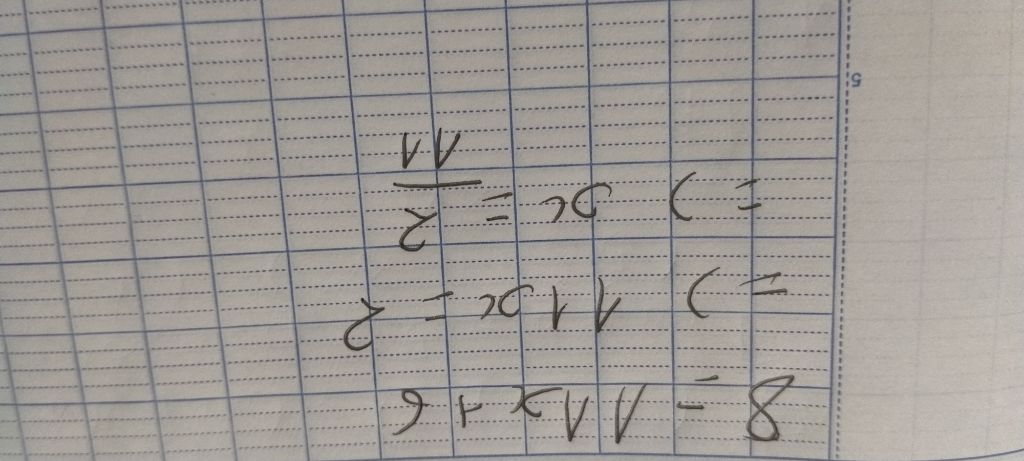 8 = 11x + 6
=) 11x = 2
=) x = 2/11
5